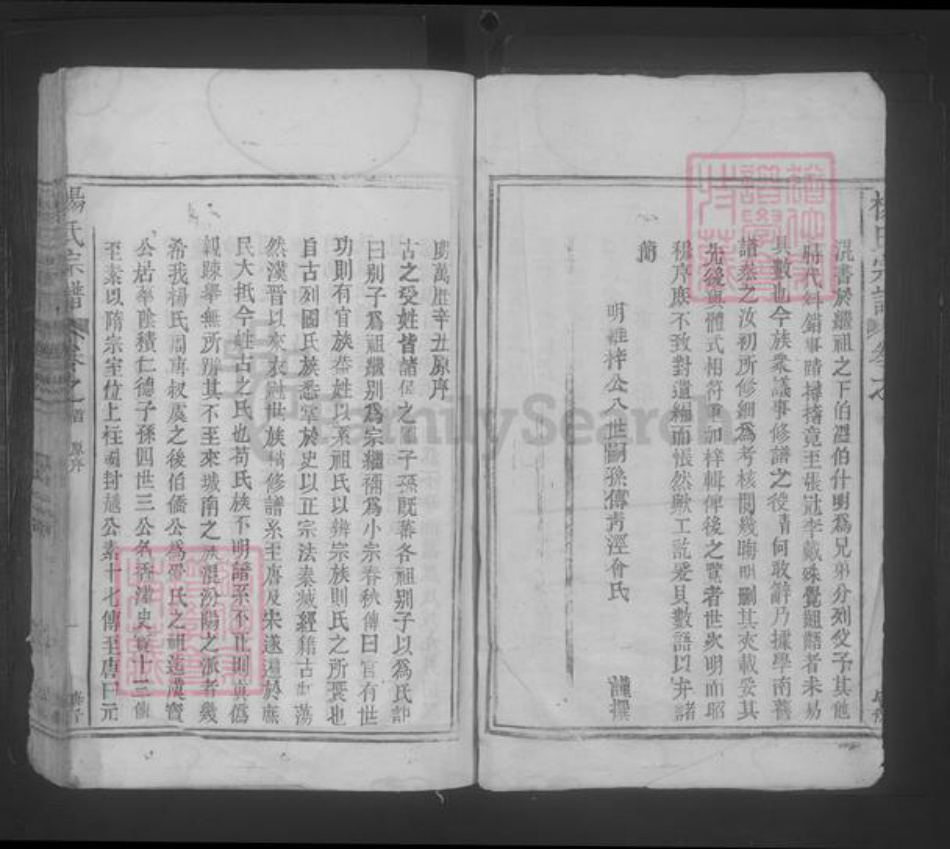 混書於繼祖之下伯仲什明爲兄弟分列父子其他
時代舛錯事蹟撏撦竟至張冠李戴殊覺齟齬者未易
具數也今族衆議事修譜之役情何敢辭乃據學南舊
譜叅之汝初所修細爲考核閱幾晦明刪其夾載妥其
先後與體式相符重加梓輯俾後之覽者世次明而昭
穆序庶不致對遺編而悵然歟工訖爰具數語以弁諸
簡
明維梓公八世嗣孫傳青溼會氏 謹撰
楊氏宗譜 卷之
萬曆辛丑原序
古之受姓皆諸侯之國子孫既蕃各祖别子以爲氏記
曰别子爲祖繼别爲宗繼禰爲小宗春秋傳曰官有世
功則有官族葢姓以系祖氏以辨宗族則氏之所要也
自古列國氏族悉掌於史以正宗法秦滅經籍古史蕩
然漢晉以來衣冠世族稍修譜系至唐及宋遂通於庶
民大抵今姓古之氏也苟氏族不明譜系不正則真僞
親踈舉無所辨其不至來城南之族混汾陽之派者幾
希我楊氏周唐叔虞之後伯僑公爲受氏之祖迄漢寶
公居華陰積仁德子孫四世三公名香漢史寶十三傳
至素以隋宗室位上柱國封越公素十七傳至唐曰元
楊氏宗譜 卷之首 原序
FamilySearch